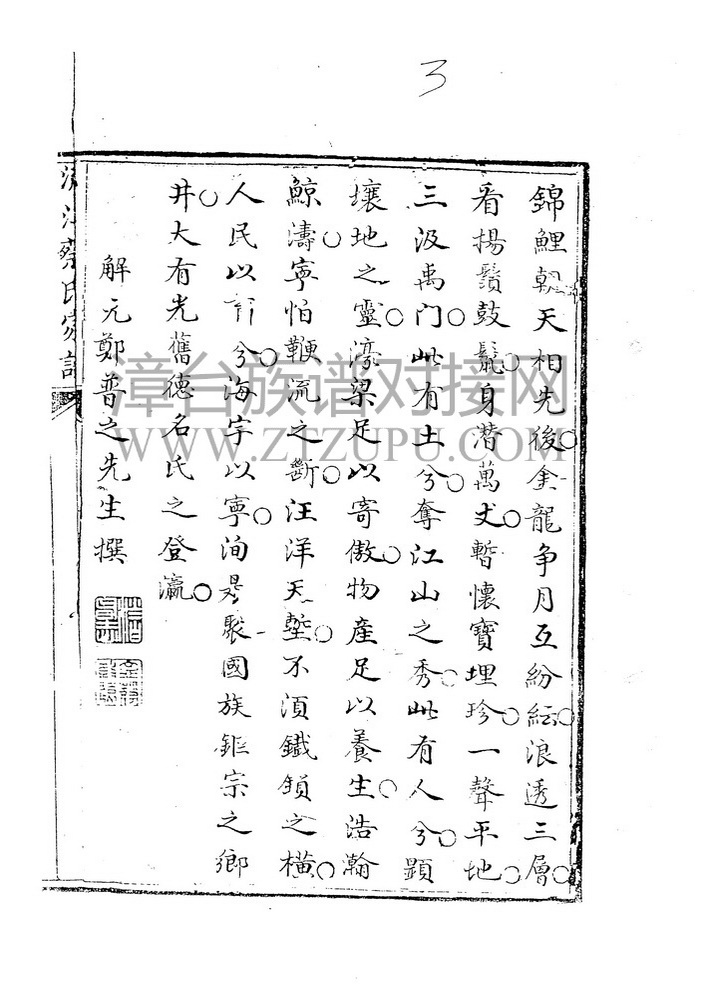 3
錦鯉朝天相先後○金龍争月互紛紜○浪透三層○
看揚鬚鼓鬣○身潜萬丈○暫懷寶埋珍○一聲平地○
三汲禹門○此有土兮○奪江山之秀○此有人兮○顕
壤地之靈○濠梁足以寄傲○物產足以養生○浩瀚
鯨濤○寧怕鞭流之斷○汪洋天塹○不湏鐵鎖之横○
人民以育兮○海宇以寧○洵是聚國族鉅宗之鄉
井○大有光舊德名氏之登瀛○
解元鄭普之先生撰
蔡氏家譜
漳台族谱对接网
WWW.ZTZUPU.COM